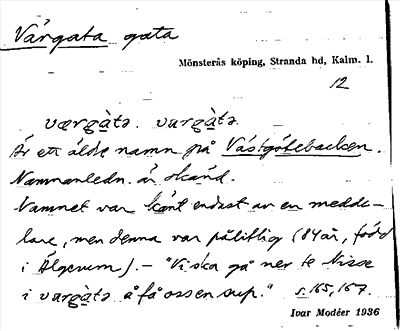 Vårgata gata
Mönsterås köping, Stranda hd, Kalm. l.
12
værgàtə. vurgàtə.
Är ett äldre namn på Västgötebacken.
Namnanledn. är okänd.
Namnet var känt endast av en medde-
lare, men denna var pålitlig (84 år, född
i Ålgerum). – "Vi ska gå ner te Nisse
i vurgàtə å få oss en sup." s. 165, 167
Ivar Modéer 1936